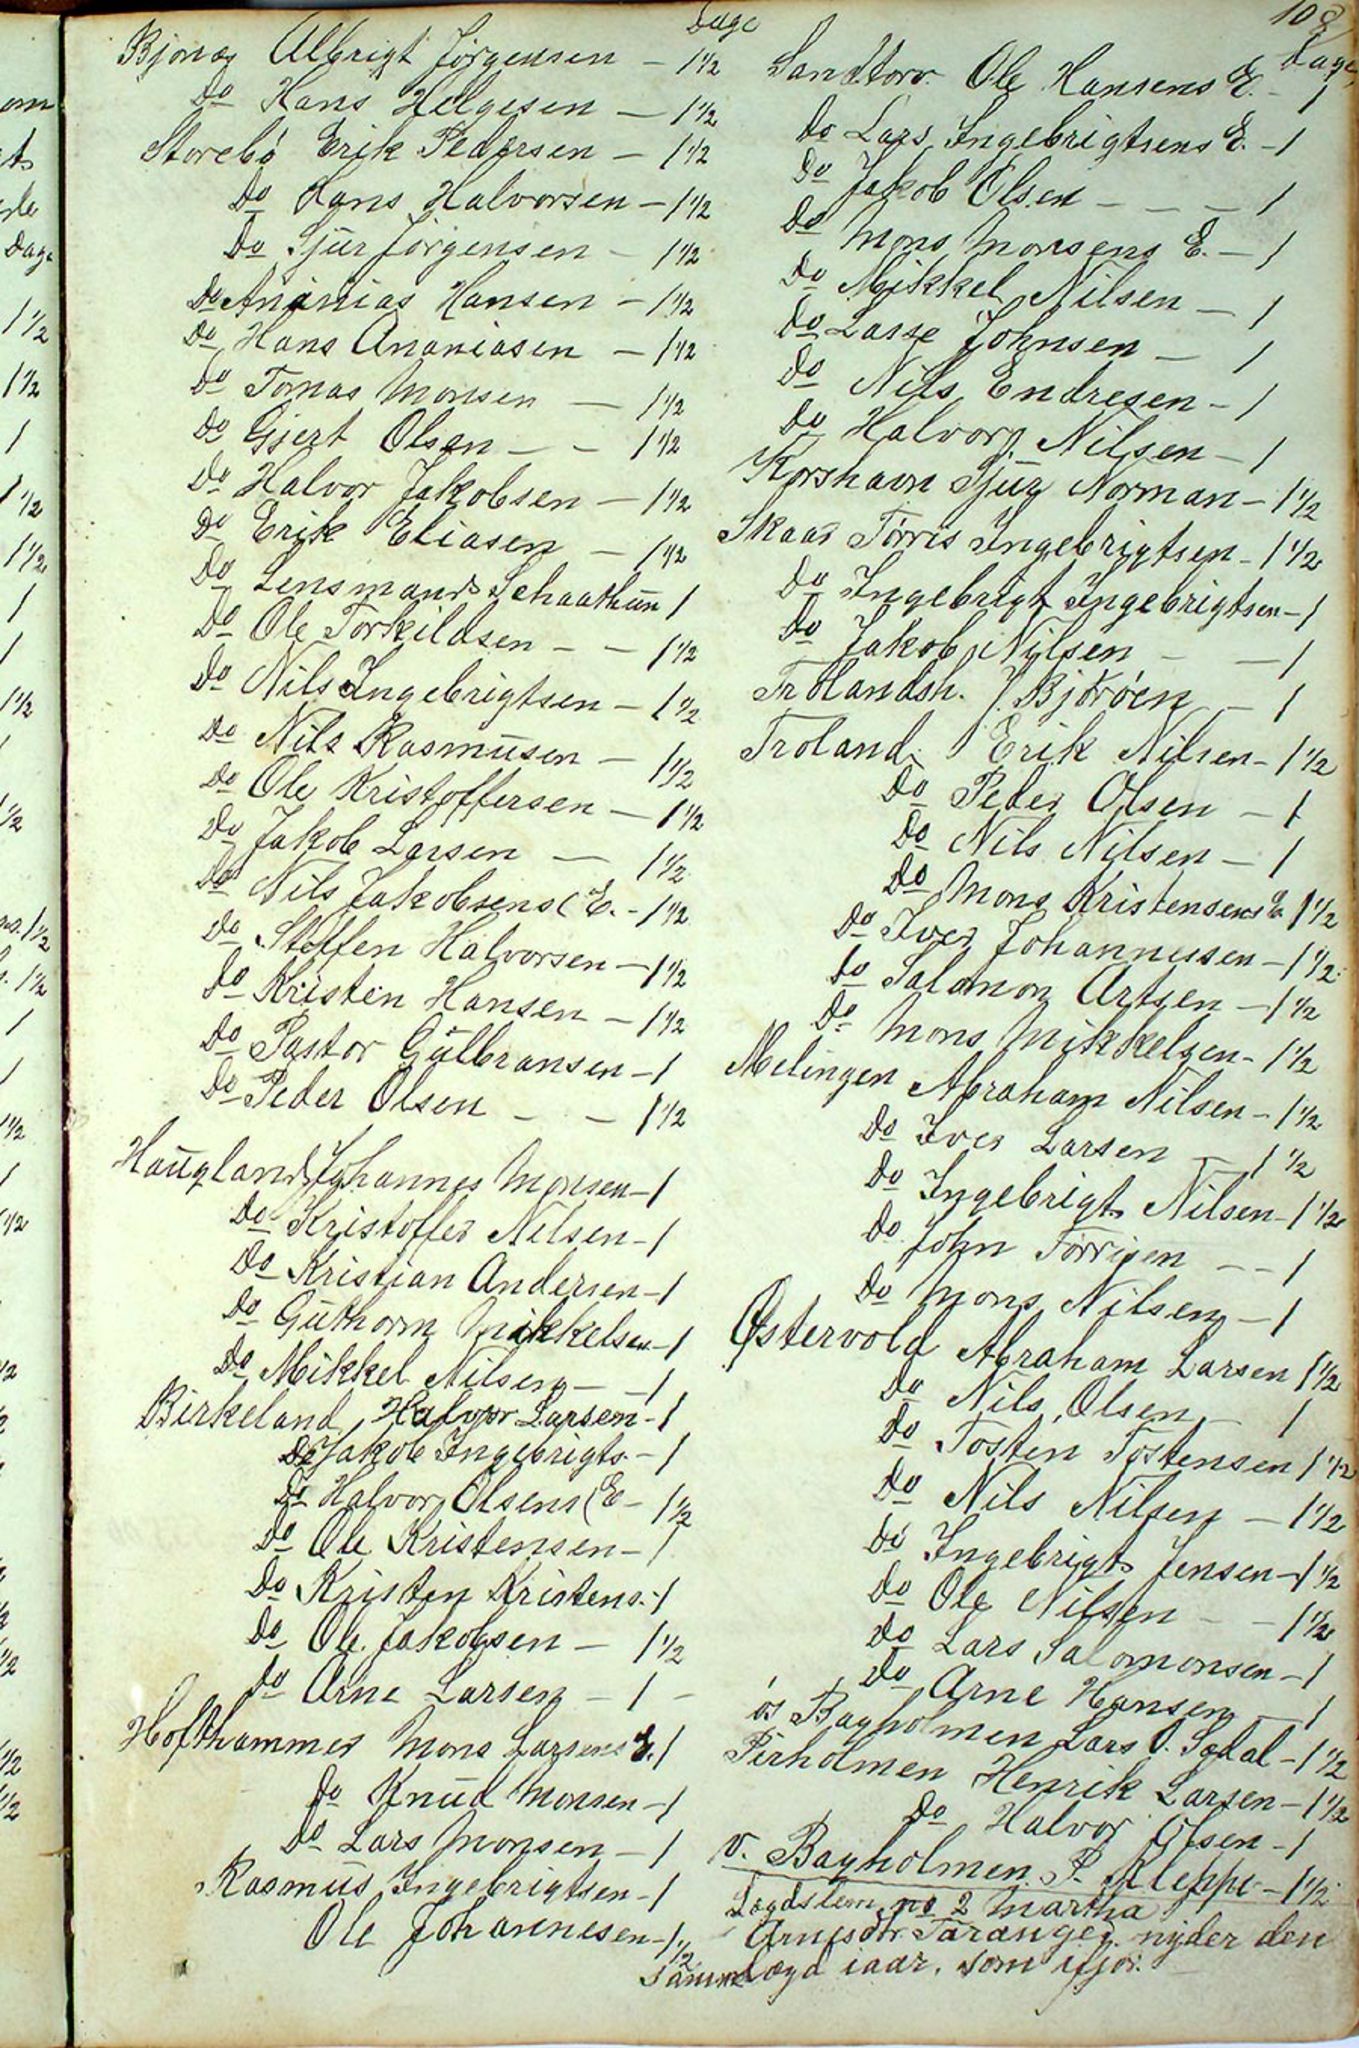 108
Dage
Bjonæs Albrigt Jørgensen – 1 1/2
Do Hans Helgesen – 1 1/2
Storebø Erik Pedersen – 1 1/2
Do Hans Halvorsen – 1 1/2
Do Sjur Jørgensen – 1 1/2
Do Ananias Hansen – 1 1/2
Do Hans Ananiasen – 1 1/2
Do Tomas Monsen – 1 1/2
Do Gjert Olsen – – 1 1/2
Do Halvor Jakobsen – 1 1/2
Do Erik Eliasen – 1 1/2
Do Lensmand Schaathun 1
Do Ole Torkildsen – – 1 1/2
Do Nils Ingebrigtsen – 1 1/2
Do Nils Rasmusen – 1 1/2
Do Ole Kristoffersen – 1 1/2
Do Jakob Larsen – 1 1/2
Do Nils Jakobsens E. – 1 1/2
Do Steffen Halvorsen – 1 1/2
Do Kristen Hansen – 1 1/2
Do Pastor Gulbransen – 1
Do Peder Olsen – – 1 1/2
Haugland Johannes Monsen – 1
Do Kristoffer Nilsen – 1
Do Kristian Andersen – 1
Do Guthorm Mikkelsen – 1
Do Mikkel Nilsen – – 1
Birkeland Halvor Larsen – 1
Do Jakob Ingebrigts. – 1
Do Halvor Olsens E – 1 1/2
Do Ole Kristensen – 1
Do Kristen Kristens. 1
Do Ole Jakobsen – 1 1/2
Do Arne Larsen – 1 –
Hofthammer Mons Larsens E. 1
Do Knud Monsen – 1
Do Lars Monsen – 1
Rasmus Ingebrigtsen – 1
Ole Johannesen – 1 1/2
Dage
Sandtorv Ole Hansens E. – 1
Do Lars Ingebrigtsens E. – 1
Do Jakob Olsen – – – 1
Do Mons Monsens E. – 1
Do Mikkel Nilsen – 1
Do Lasse Johnsen – 1
Do Nils Endresen – 1
Do Halvor Nilsen – 1
Korshavn Sjur Norman – 1 1/2
Skaar Tørris Ingebrigtsen – 1 1/2
Do Ingebrigt Ingebrigtsen – 1
Do Jakob Nilsen – – 1
Trolandsh. J. Bjorøen – 1
Troland Erik Nilsen – 1 1/2
Do Peder Olsen – 1
Do Nils Nilsen – 1
Do Mons Kristensens E. 1 1/2
Do Iver Johannesen – 1 1/2
Do Salomon Artsen – 1 1/2
Do Mons Mikkelsen – 1 1/2
Melingen Abraham Nilsen – 1 1/2
Do Iver Larsen – 1 1/2
Do Ingebrigt Nilsen – 1 1/2
Do John Tørrisen – – 1
Do Mons Nilsen – 1
Østervold Abraham Larsen 1 1/2
Do Nils Olsen – 1
Do Tosten Tostensen 1 1/2
Do Nils Nilsen – 1 1/2
Do Ingebrigt Jensen – 1 1/2
Do Ole Nilsen – – 1 1/2
Do Lars Salomonsen – 1
Do Arne Hansen – 1
ös Bagholmen Lars O. Sødal – 1 1/2
Pirholmen Henrik Larsen – 1 1/2
Do Halvor Olsen – 1
v. Bagholmen P. Kleppe – 1 1/2
Lægdslem no 2 Martha
Arnesdtr Taranger nyder den
samme Lægd iaar, som ifjor.